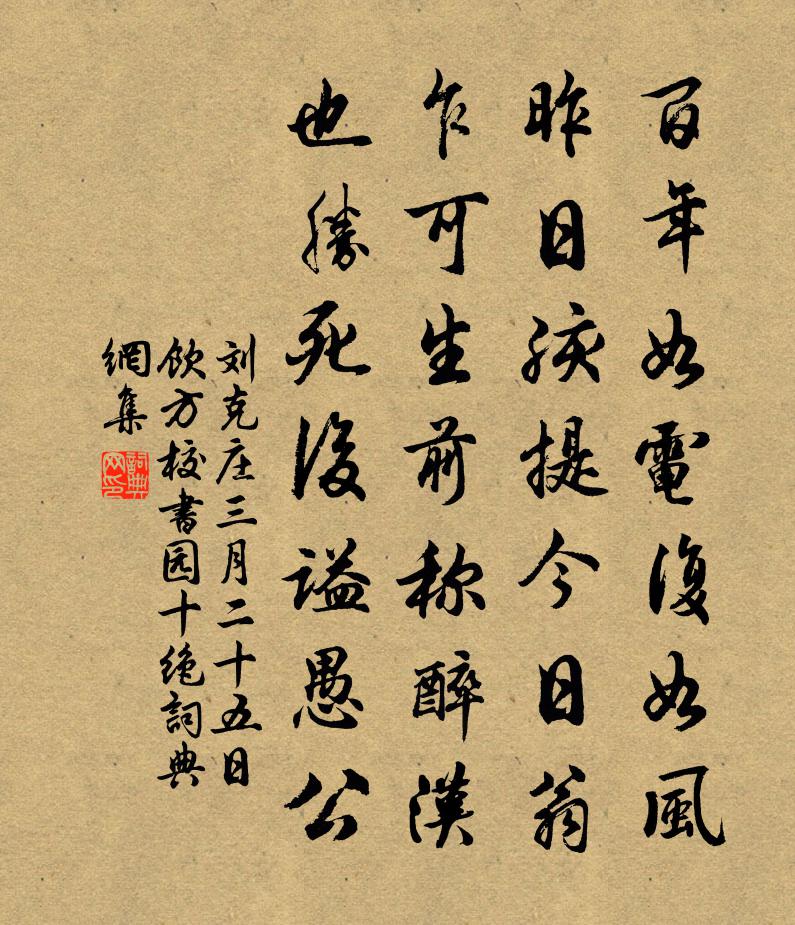 百年如電復如風
昨日孩提今日翁
乍可生前称醉漢
也勝死後謚愚公
刘克庄三月二十五日
飲方校書园十绝詞典
網集
詞典
网印